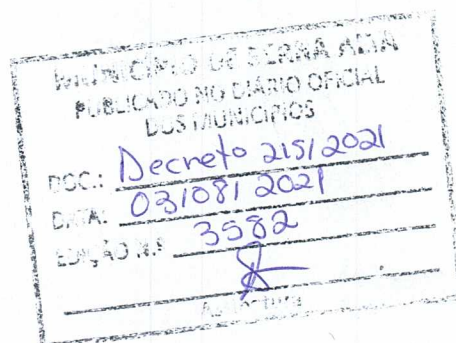 MUNICÍPIO DE SERRA ALTA
PUBLICADO NO DIÁRIO OFICIAL
DOS MUNICÍPIOS
DOC.: Decreto 215/2021
DATA: 03/08/2021
EDIÇÃO N.º 3582
Assinatura